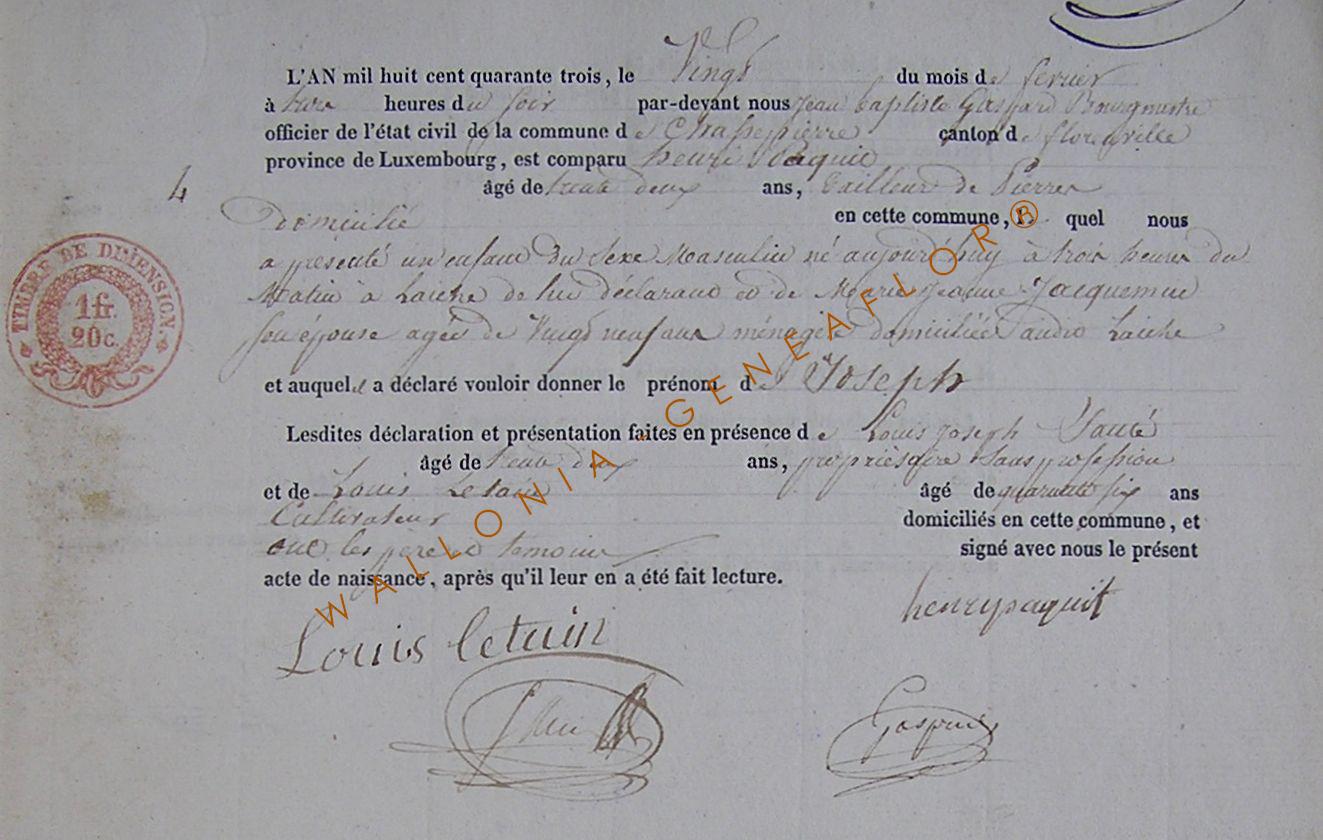 L'AN mil huit cent quarante trois, le Vingt du mois de fevrier
à trois heures du soir par-devant nous Jean baptiste Gaspard Bourgmestre
officier de l'état civil de la commune de Chassepierre canton de florenville
province de Luxembourg, est comparu henri Paquit
4
âgé de trente deux ans, tailleur de Pierres
domicilié en cette commune, lequel nous
a présenté un enfant du Sexe Masculin né aujourd'huy à trois heures du
Matin à Laiche de lui déclarant et de Marie Jeanne Jacquemin
son épouse agée de Vingt neuf ans ménagère domiciliée audit Laiche
et auquel il a déclaré vouloir donner le prénom de Joseph
Lesdites déclaration et présentation faites en présence de Louis Joseph
âgé de trente deux ans, propriétaire Sans profession
et de Louis Letuin âgé de quarante six ans
Cultivateur domiciliés en cette commune, et
ont les père et temoins signé avec nous le présent
acte de naissance, après qu'il leur en a été fait lecture.
henry paquit
Louis letuin
Gaspard
TIMBRE DE DIMENSION.
1fr.
20c.
WALLONIA - GENEAFLOR®